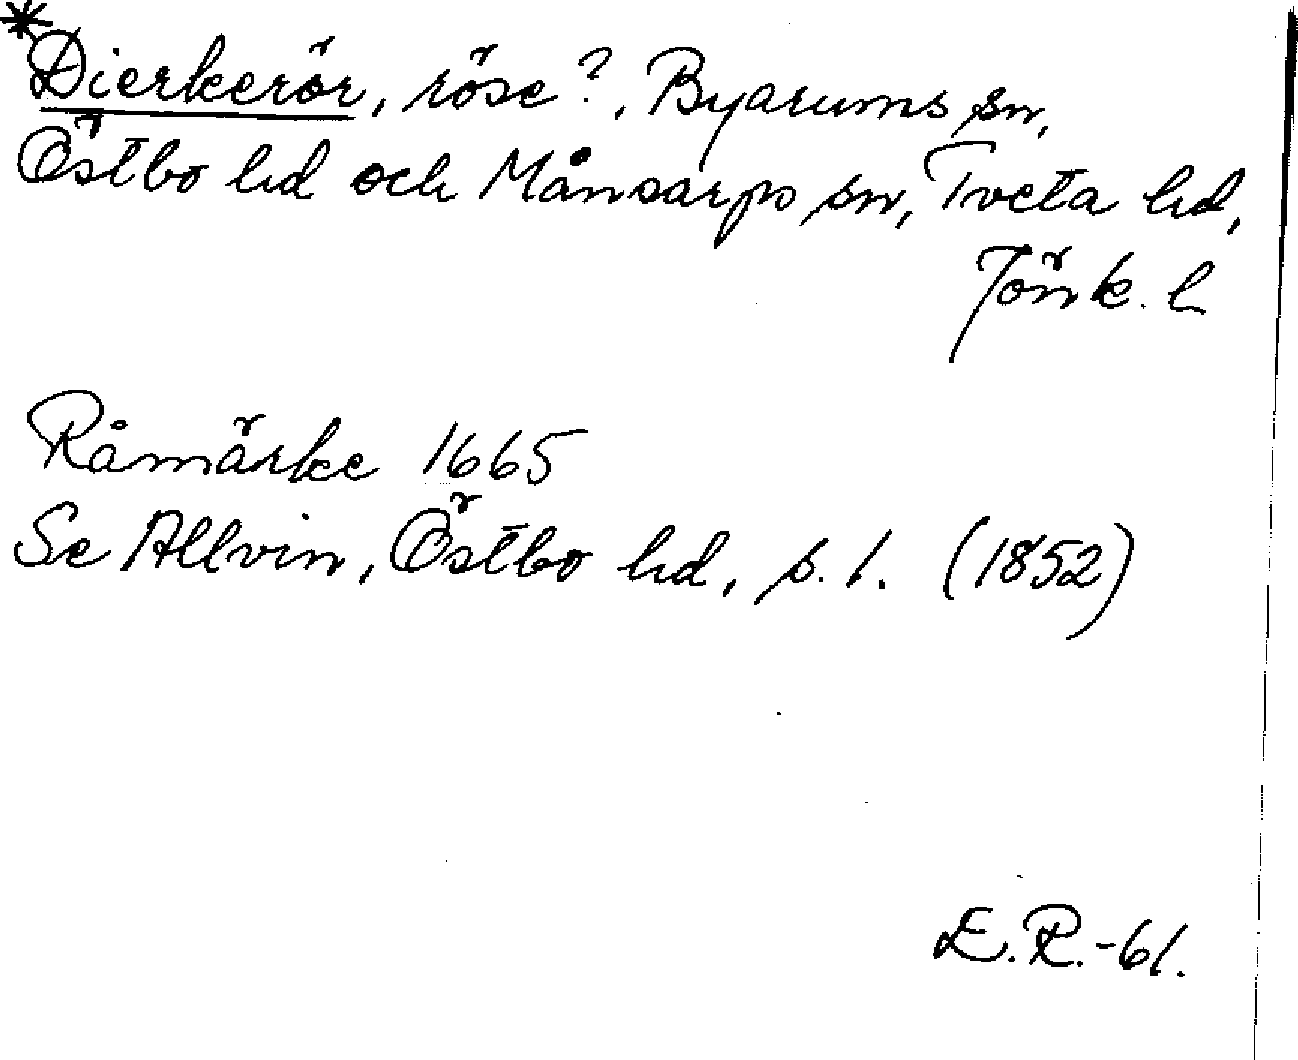 *Dierkerör, röse?, Byarums sn,
Östbo hd och Månsarps sn, Tveta hd,
Jönk. l
Råmärke 1665
Se Allvin, Östbo hd, s. 1. (1852)
E.R.-61.